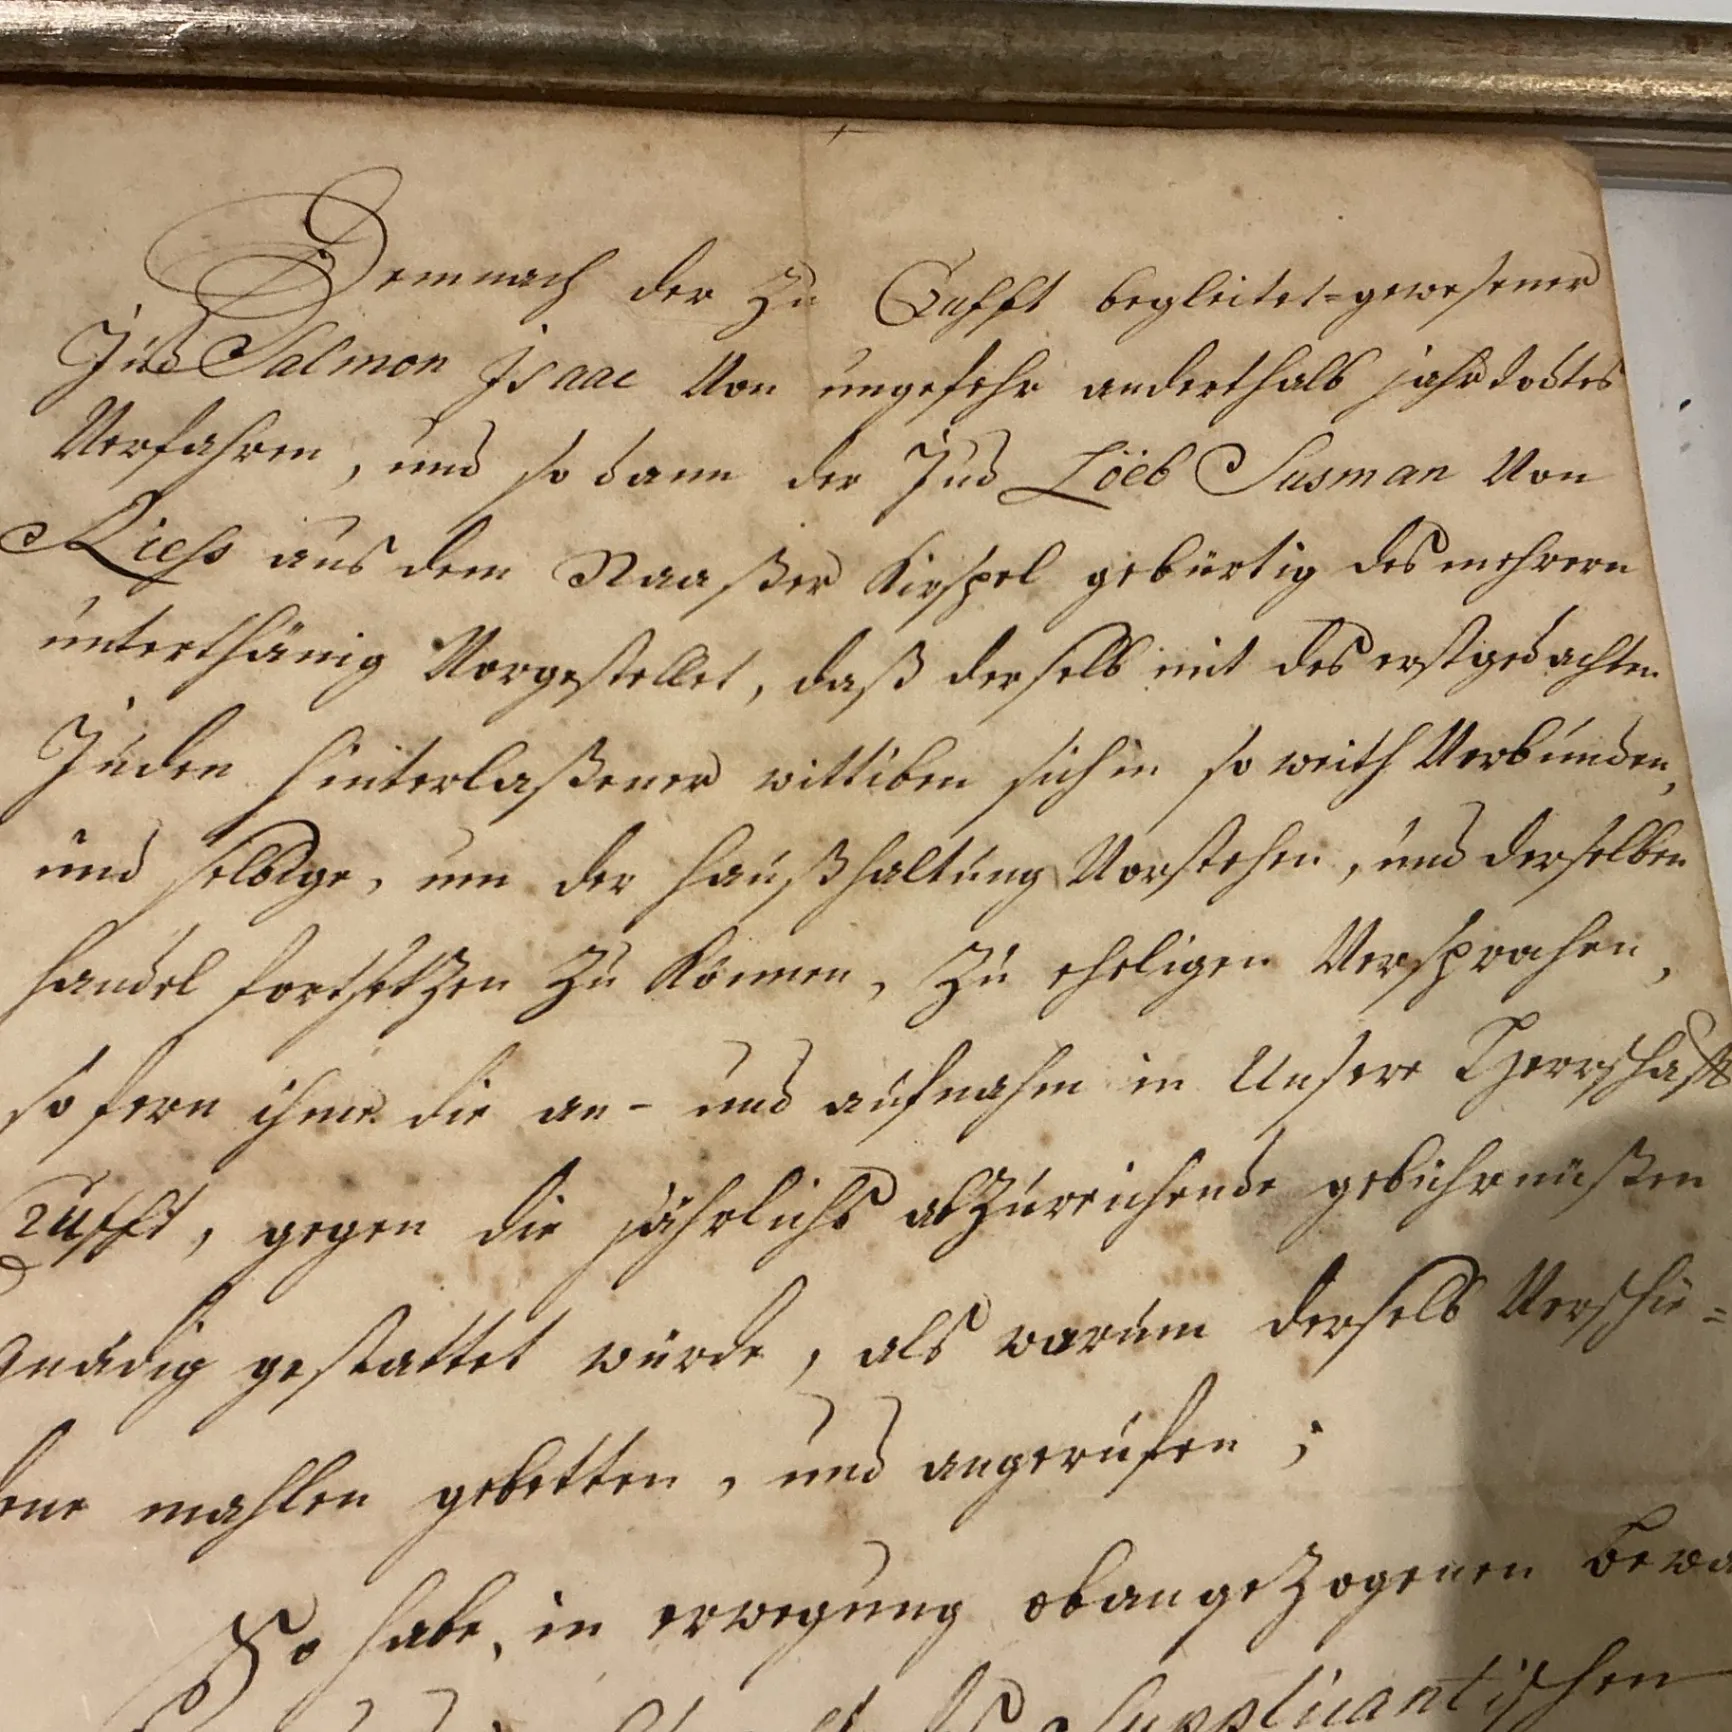 Demnach der zu Crufft begleitet=gewesener
Jud Salmon Isaac Von ungefehr anderthalb jahr todtes
Verfahren, und so dann der Jud Löeb Susman Von
Riess aus dem Naaßer Kirspel gebürtig des mehrern
unterthänig Vorgestellet, daß derselb mit des erstgedachten
Juden hinterlaßener wittiben sich in so weith Verbunden,
und selbige, um der haußhaltung Vorstehen, und derselben
handel fortsetzen zu können, zu eheligen Versprochen,
so fern ihme die an- und aufnahm in Unsere Herrschafft
Crufft, gegen die jährlichs abzureichende gebührnüßen
gnädig gestattet würde, als warum derselb Verschie=
dene mahlen gebetten, und angerufen;
So habe, in erwegung obangezogenen bewa
Supplicantischen